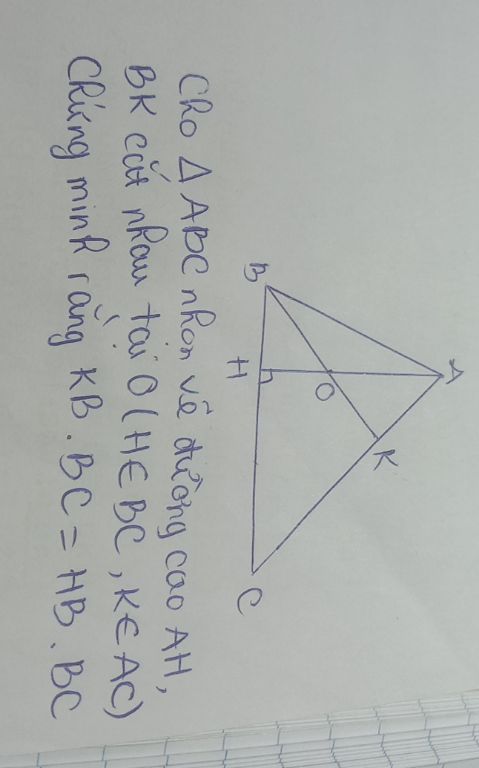 Cho Δ ABC nhọn vẽ đường cao AH,
BK cắt nhau tại O (H∈BC, K∈AC)
Chứng minh rằng KB.BC = HB.BC
A
B
H
O
K
C